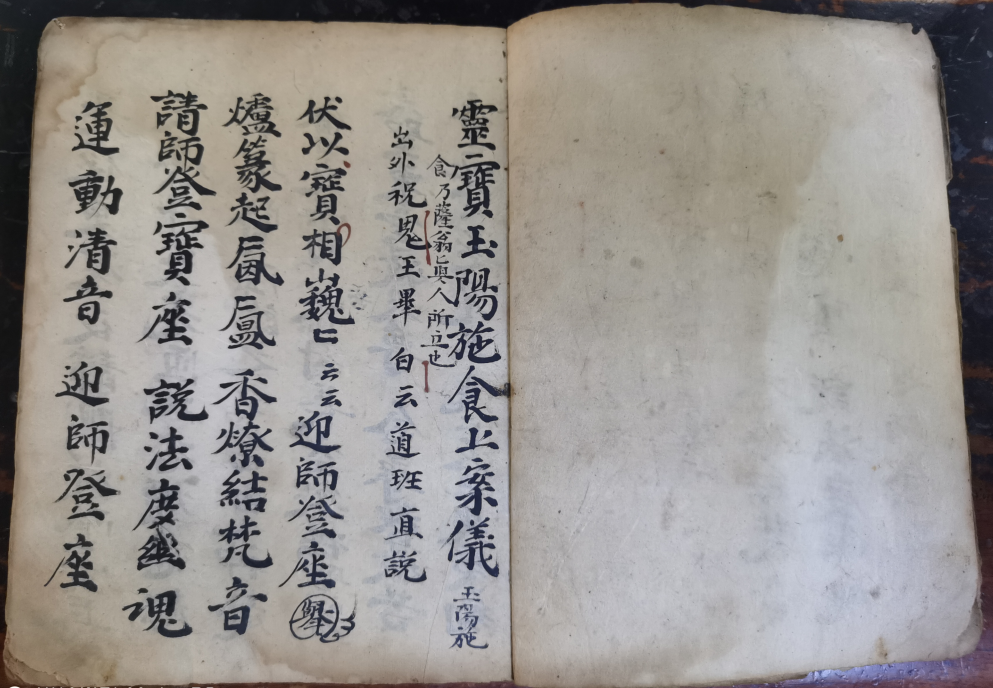 靈寶玉陽施食上案儀 玉陽施
食乃薩翁真人所立也
出外祝鬼王畢 白云道班直説
伏以寶相巍〻 云云 迎師登座 舉
爐篆起氤氲 香燎結梵音
請師登寶座 説法度幽魂
運動清音 迎師登座